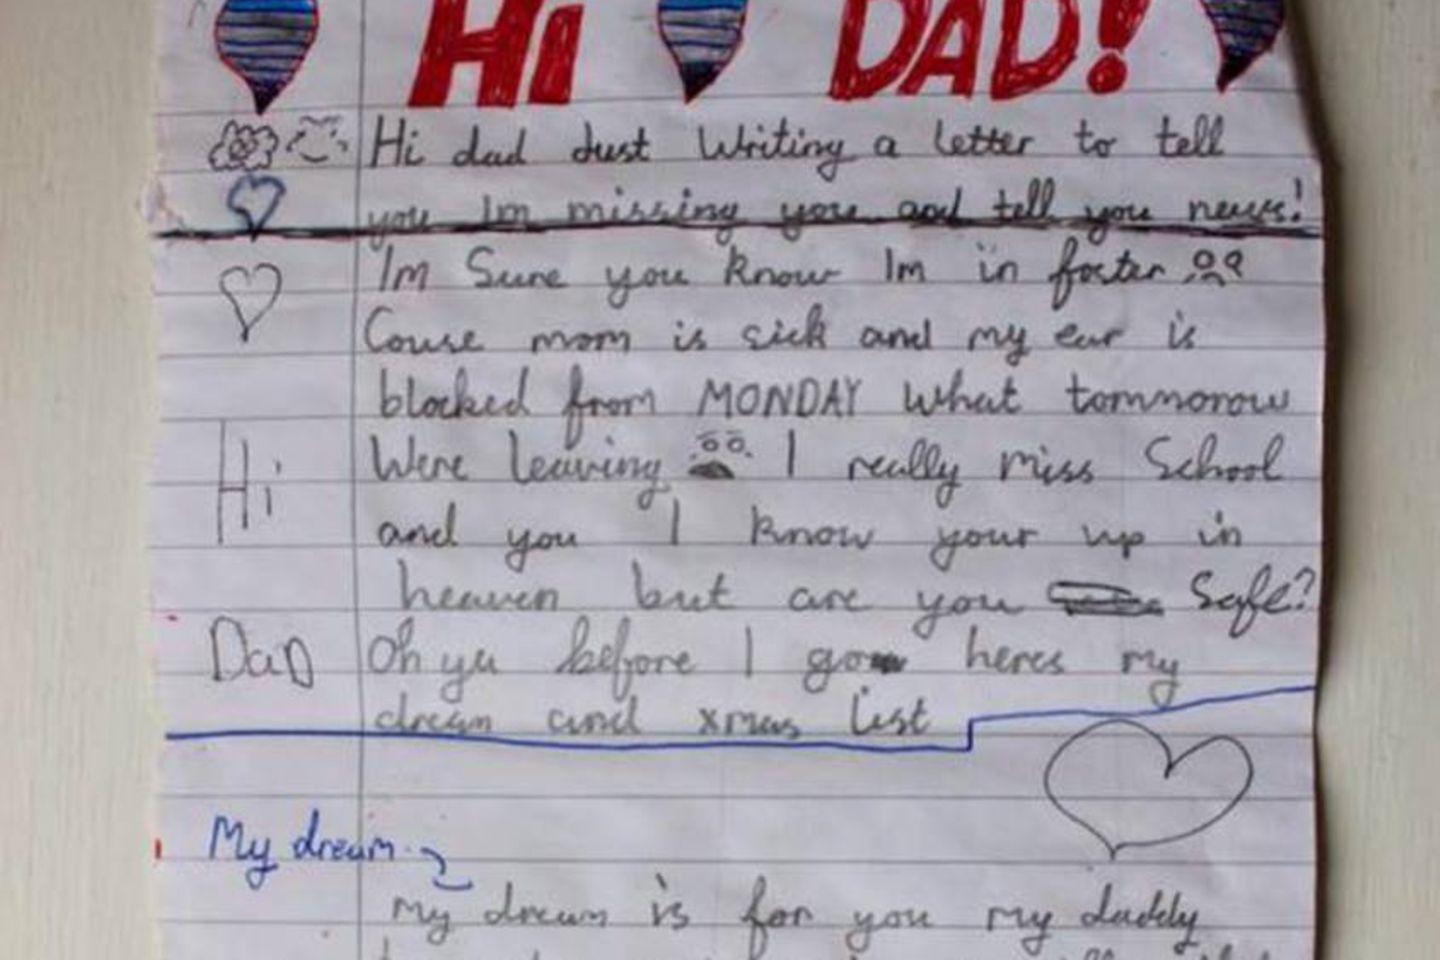 Hi DAD!
Hi dad Just Writing a letter to tell
you Im missing you and tell you news!
Im Sure you know Im in foster
Couse mom is sick and my ear is
blocked from MONDAY What tommorow
Hi
Were leaving I really miss School
and you I know your up in
heaven but are you Safe?
Dad
Oh ya before I go heres my
dream and xmas list
My dream
My dream is for you my daddy